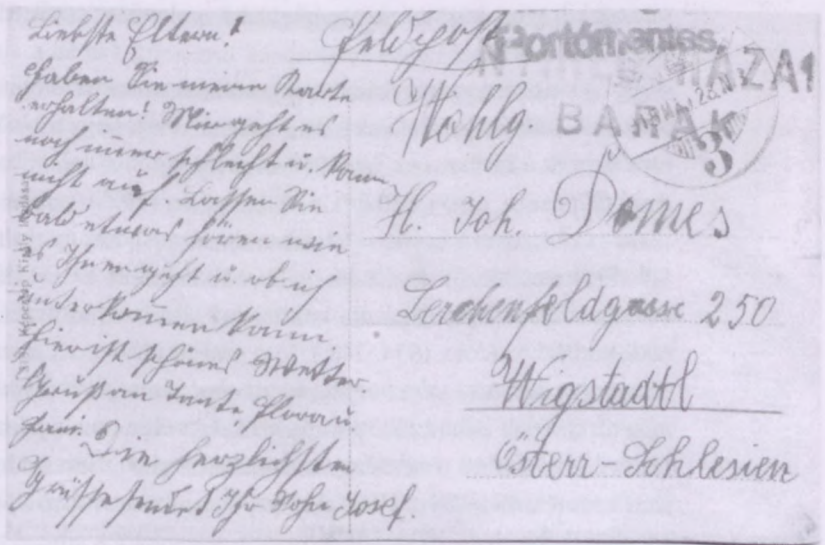 Liebste Eltern!
Haben Sie meine Karte
erhalten! Mir geht es
noch immer schlecht u. kann
nicht auf. Lassen Sie
bald etwas hören wie
es Ihnen geht u. ob ich
unterkommen kann.
Hier ist schönes Wetter
Gruß an Tante
Die herzlichsten
Grüsse sendet Ihr Sohn Josef.
Feldpost
Portómentes.
BARAK
3
Wohlg
H. Joh. Domes
Lerchenfeldgasse 250
Wigstadtl
Österr-Schlesien